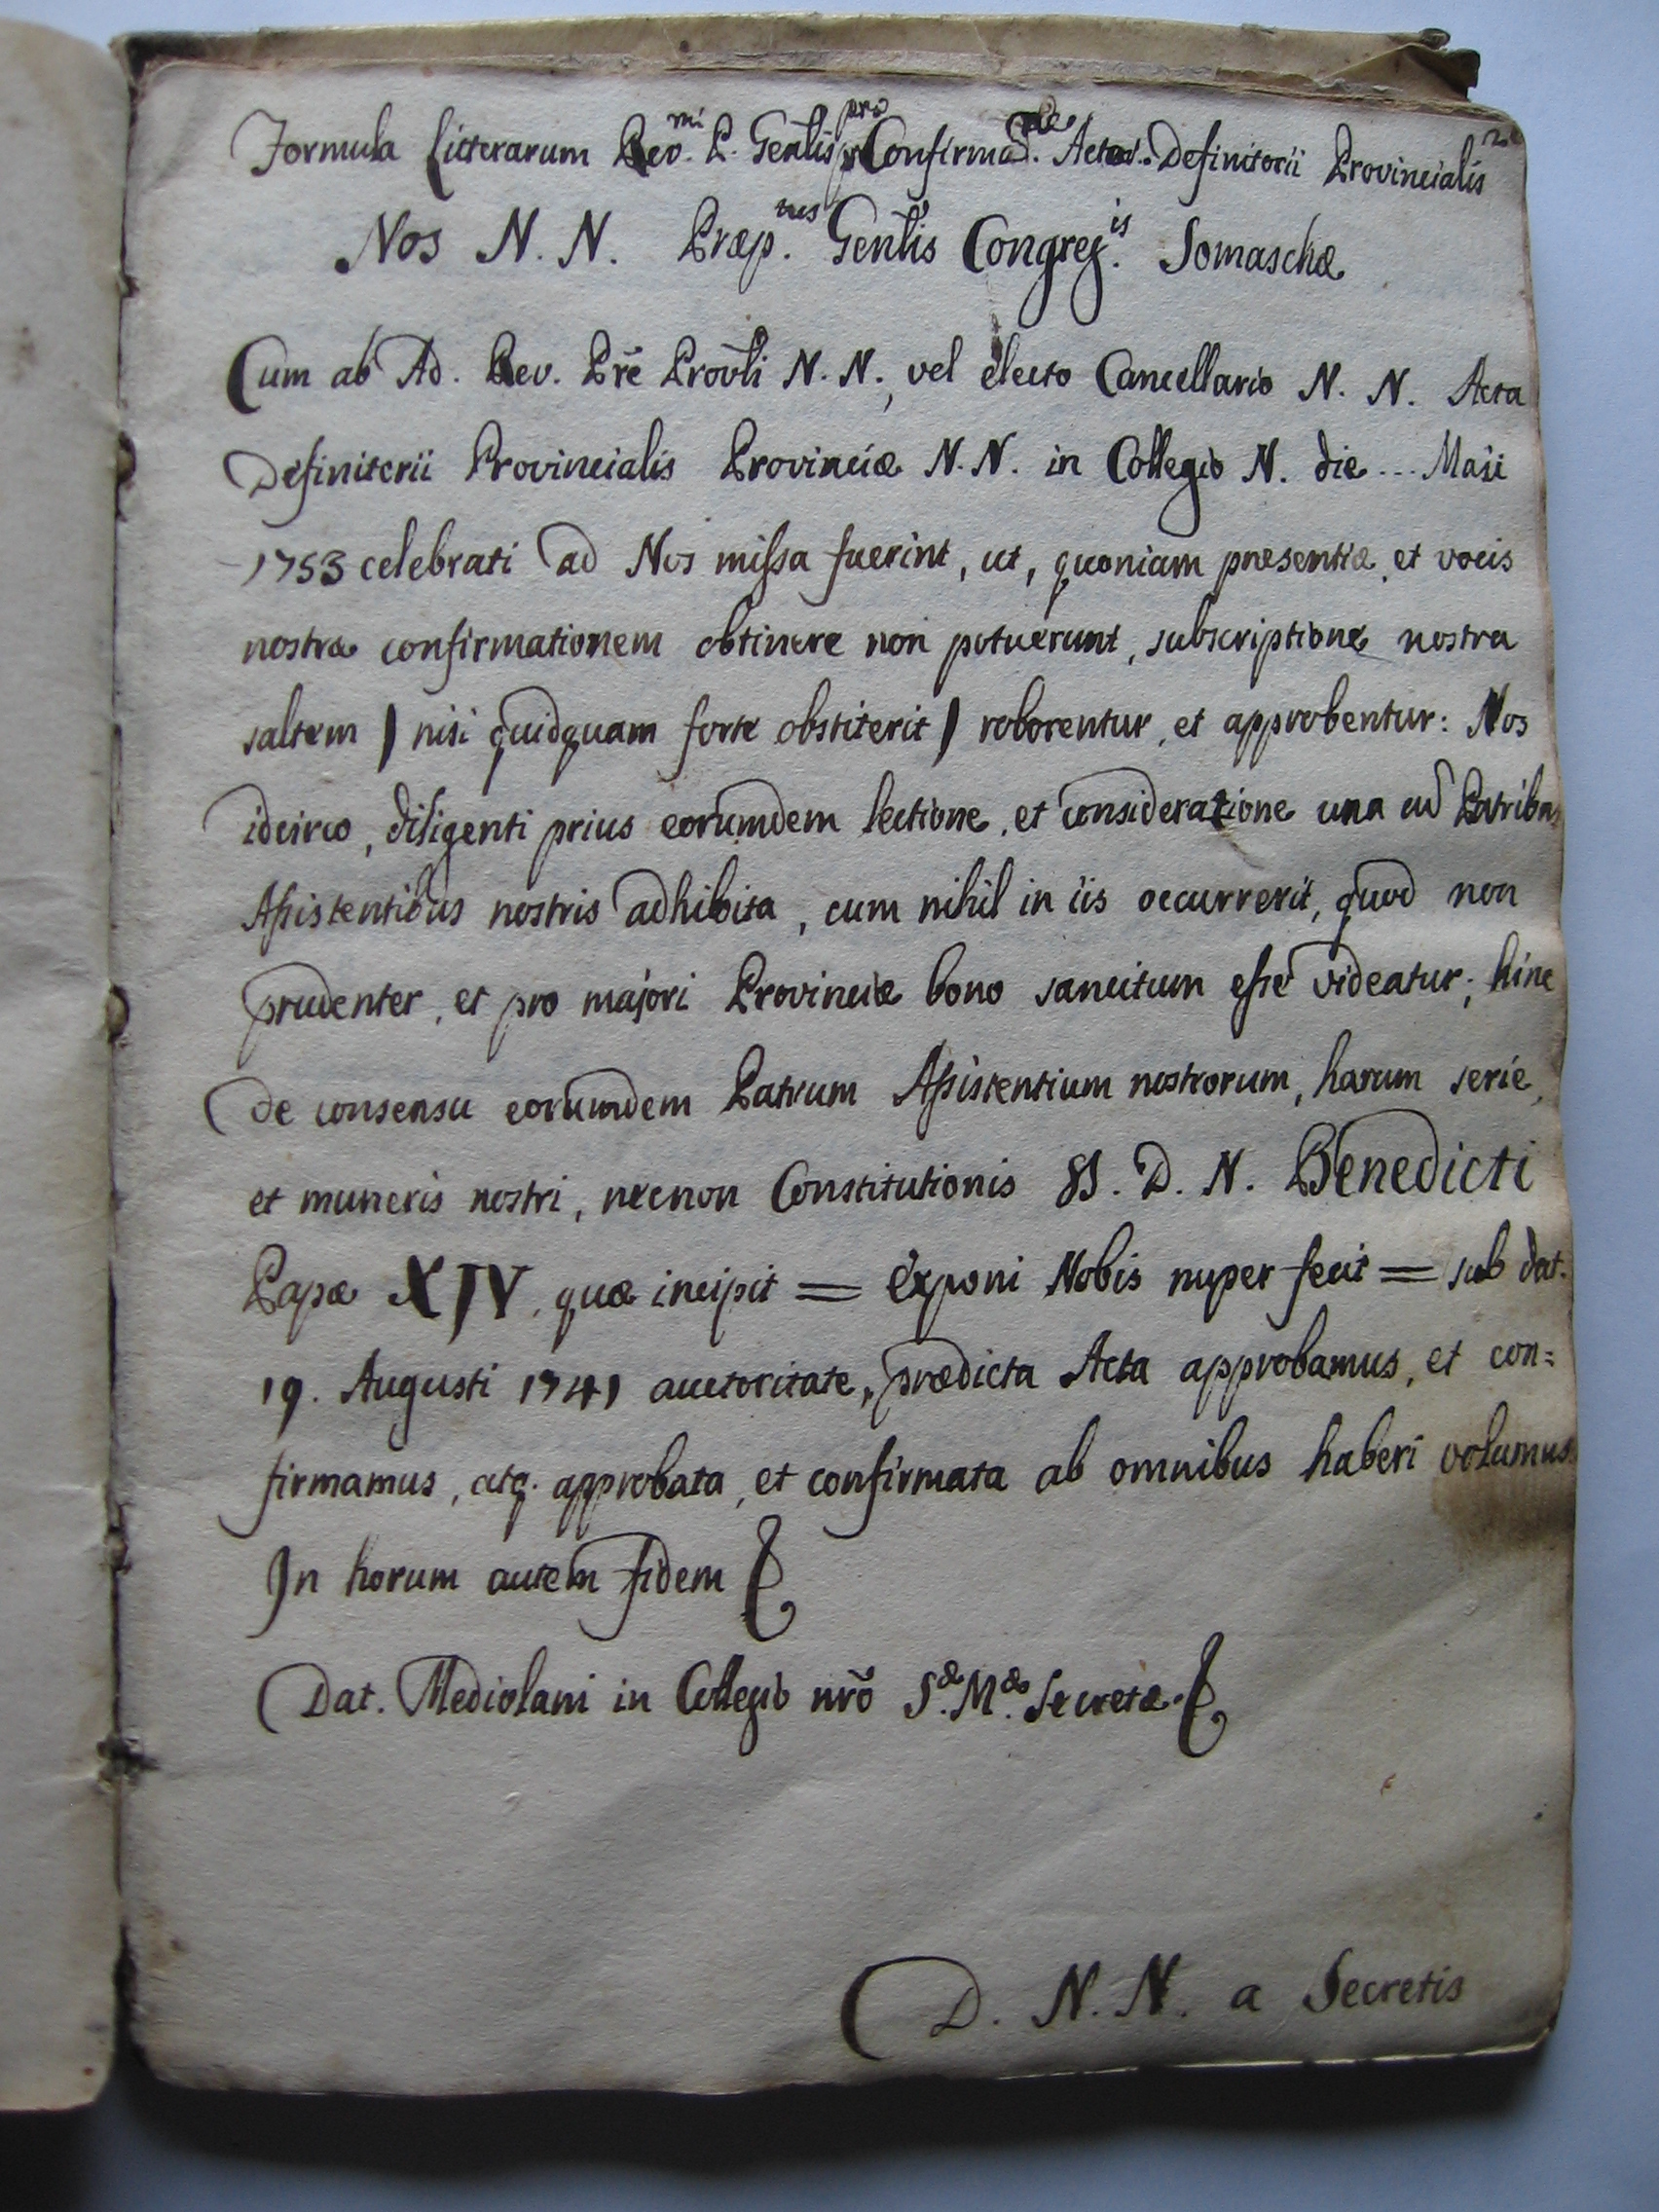 Formula Litterarum Rev.mi P. Gen̄lis pro Confirmad. Actor. Definitorii Provincialis
Nos N. N. Præp.tus Gen̄lis Congreg.is Somaschæ
Cum ab Ad. Rev. Prē Provl̄i N. N., vel electo Cancellario N. N. Acta
Definitorii Provincialis Provinciæ N. N. in Collegio N. die ... Maii
1753 celebrati ad Nos missa fuerint, ut, quoniam præsentiæ, et vocis
nostræ confirmationem obtinere non potuerunt, subscriptione nostra
saltem ) nisi quidquam forte obstiterit ) roborentur, et approbentur: Nos
idcirco, diligenti prius eorumdem lectione, et consideratione una cū Patribus
Assistentibus nostris adhibita, cum nihil in iis occurrerit, quod non
prudenter, et pro majori Provinciæ bono sancitum esse videatur; hinc
de consensu eorumdem Patrum Assistentium nostrorum, harum serie,
et muneris nostri, necnon Constitutionis SS. D. N. Benedicti
Papæ XIV, quæ incipit = Exponi Nobis nuper fecit = sub dat.
19. Augusti 1741 auctoritate, prædicta Acta approbamus, et con=
firmamus, atq. approbata, et confirmata ab omnibus haberi volumus
In horum autem fidem
Dat. Mediolani in Collegio nrō S.æ M.æ Secretæ.
D. N. N. a Secretis